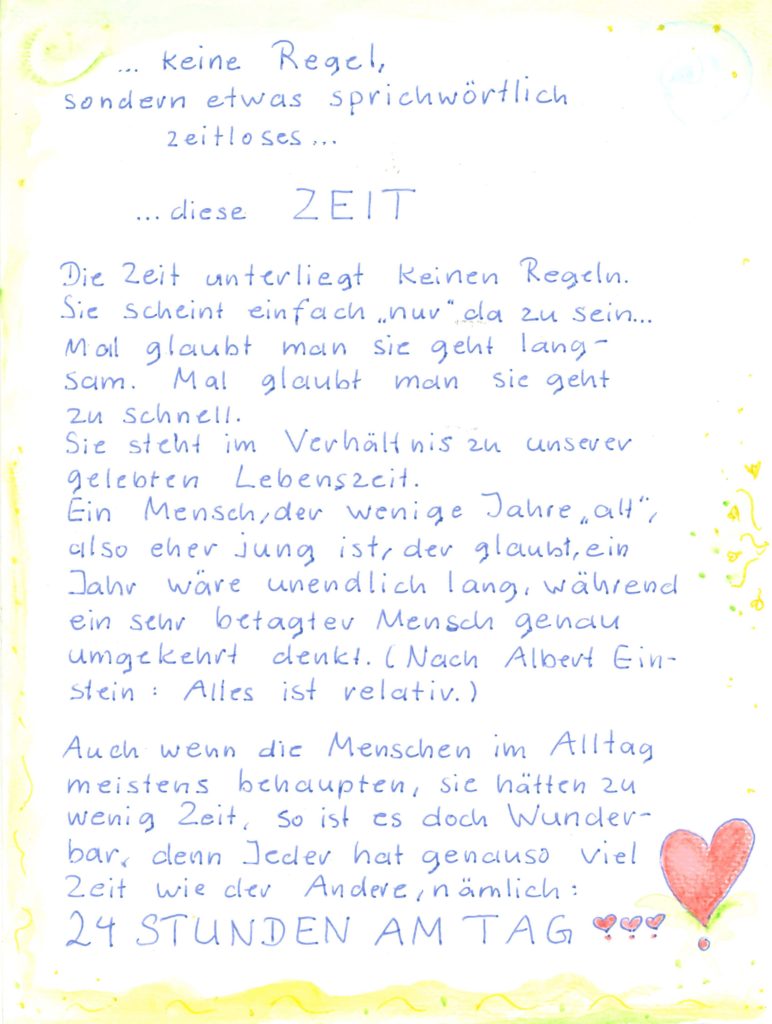 ... keine Regel,
sondern etwas sprichwörtlich
zeitloses...
...diese ZEIT
Die Zeit unterliegt keinen Regeln.
Sie scheint einfach „nur“ da zu sein...
Mal glaubt man sie geht lang-
sam. Mal glaubt man sie geht
zu schnell.
Sie steht im Verhältnis zu unserer
gelebten Lebenszeit.
Ein Mensch, der wenige Jahre „alt“,
also eher jung ist, der glaubt, ein
Jahr wäre unendlich lang, während
ein sehr betagter Mensch genau
umgekehrt denkt. (Nach Albert Ein-
stein: Alles ist relativ.)
Auch wenn die Menschen im Alltag
meistens behaupten, sie hätten zu
wenig Zeit, so ist es doch Wunder-
bar, denn Jeder hat genauso viel
Zeit wie der Andere, nämlich:
24 STUNDEN AM TAG